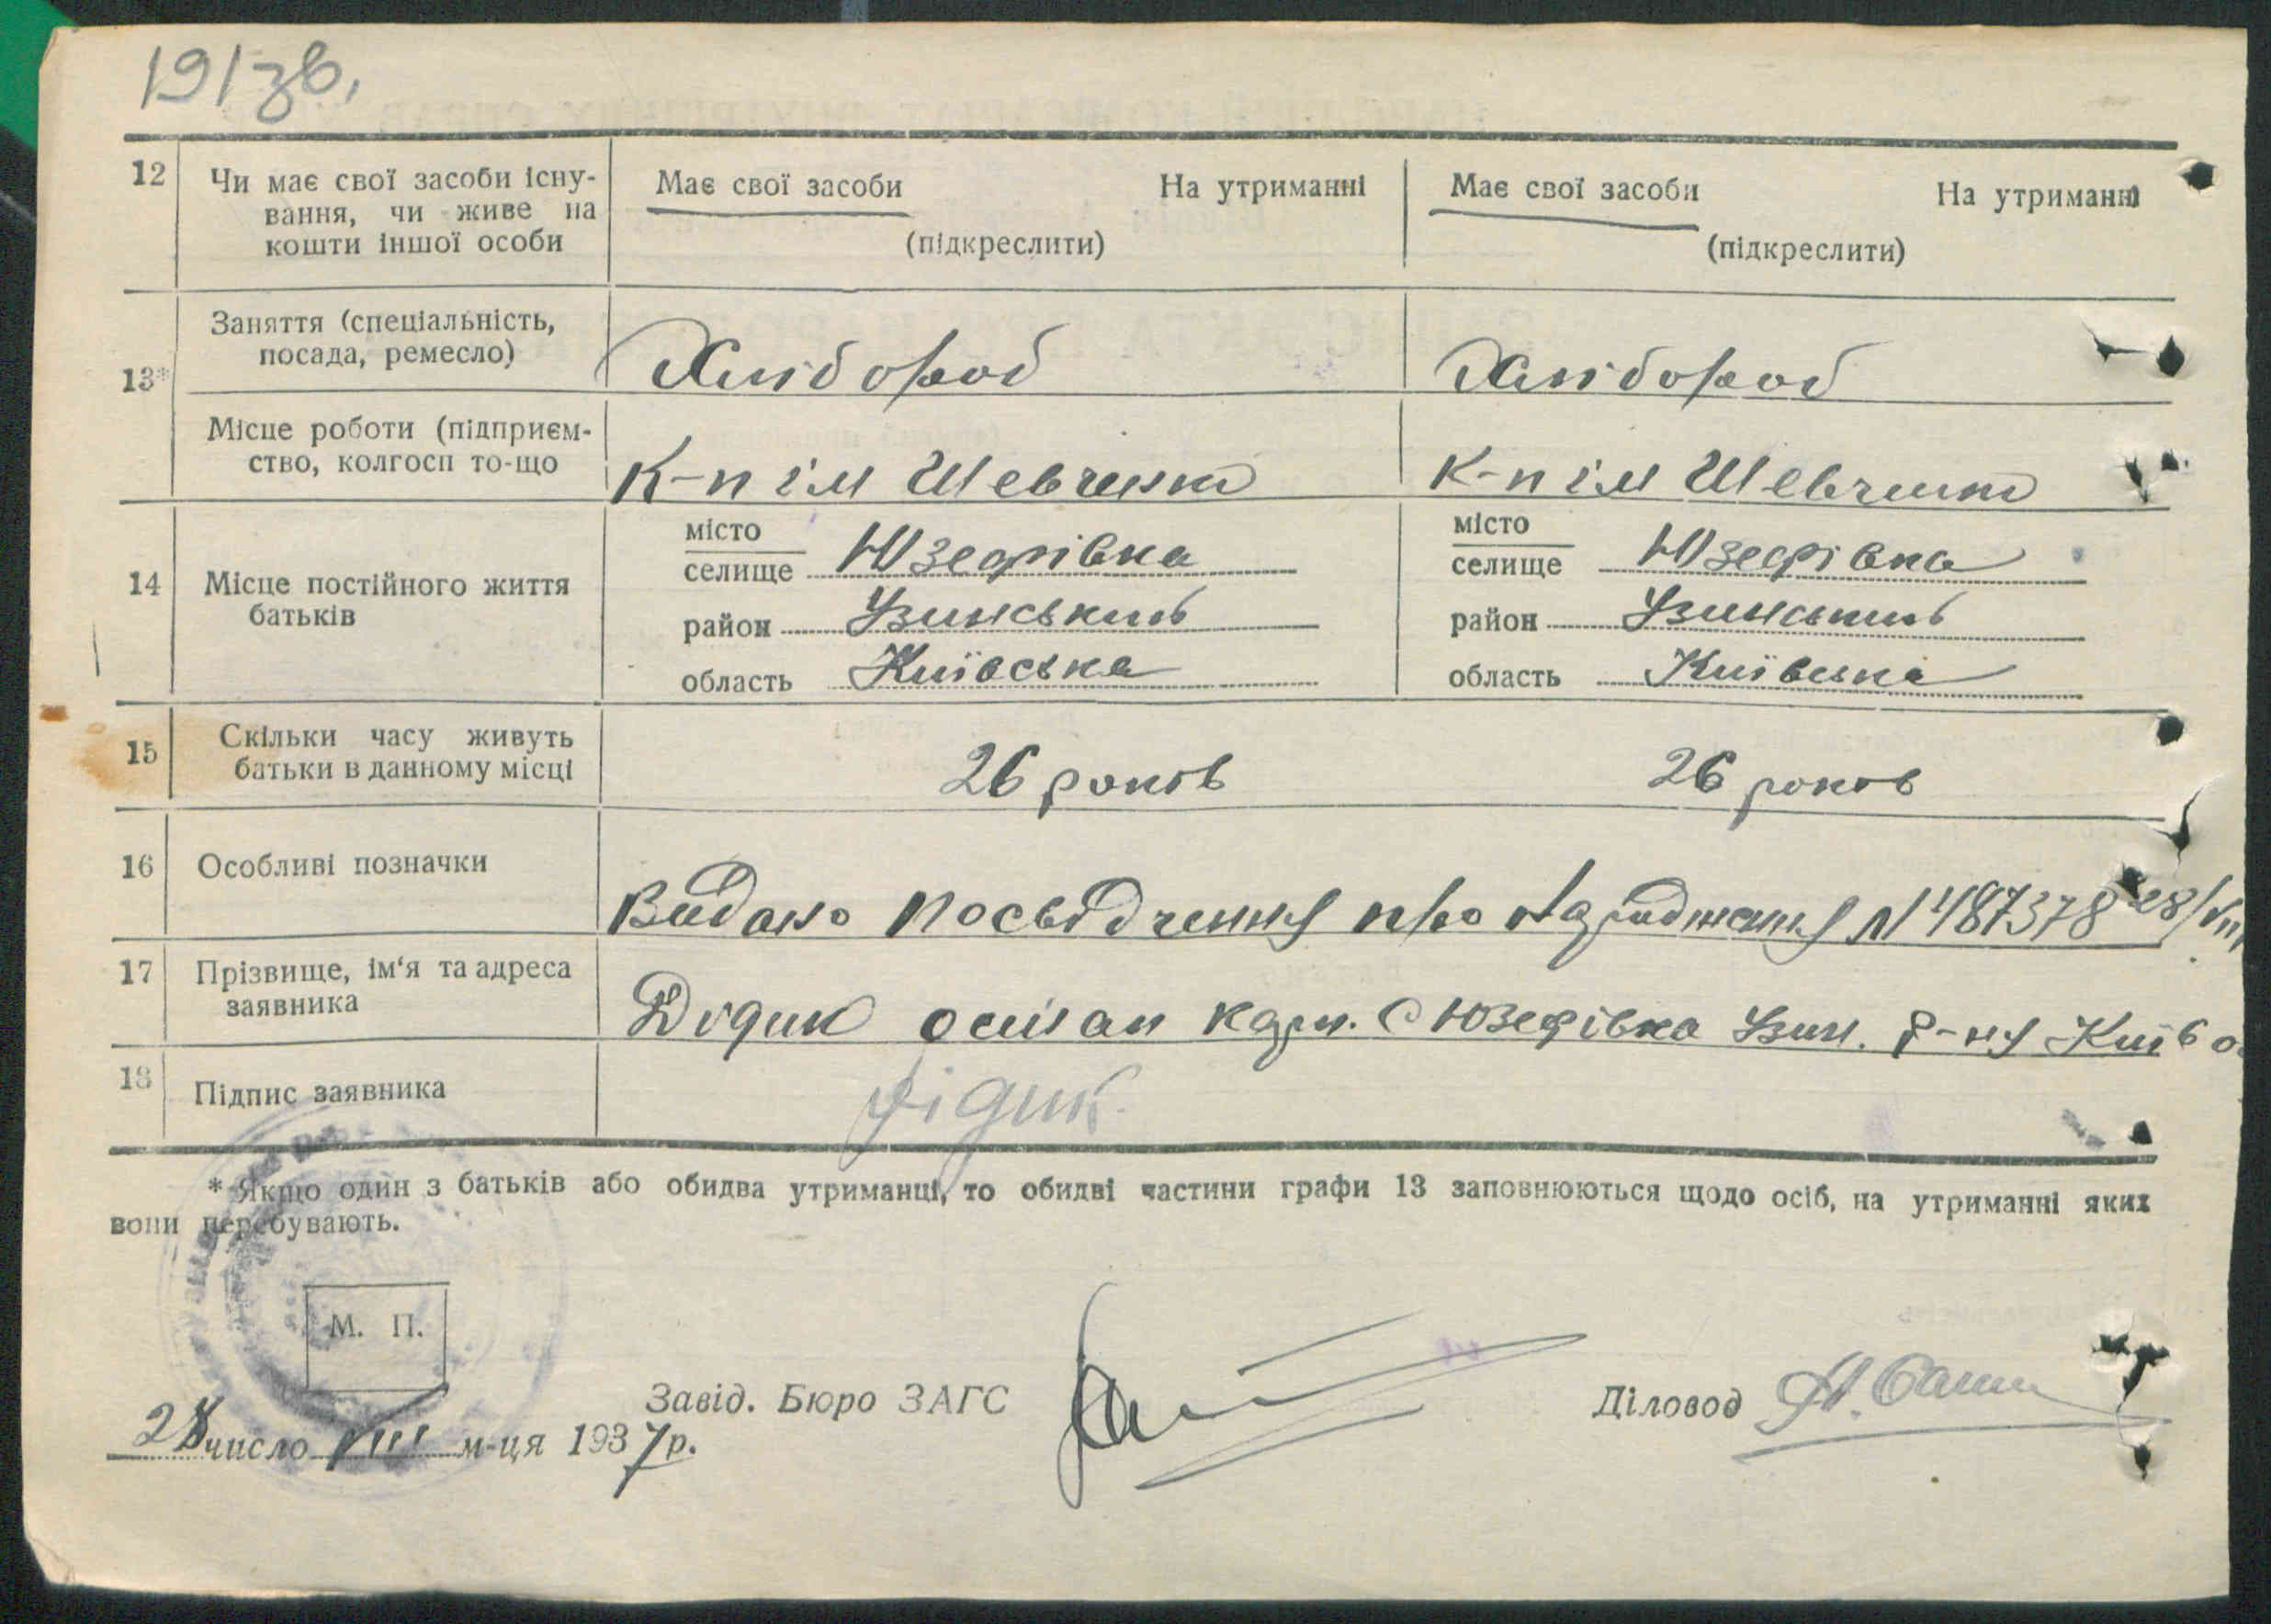 191зв.
12 Чи має свої засоби існу-
вання, чи живе на
кошти іншої особи
Має свої засоби На утриманні
(підкреслити)
Має свої засоби На утриманні
(підкреслити)
13*
Заняття (спеціальність,
посада, ремесло)
Хлібороб
Хлібороб
Місце роботи (підприєм-
ство, колгосп то-що
К-п ім Шевченко
К-п ім Шевченко
14 Місце постійного життя
батьків
місто
селище Юзефівка
район Узинський
область Київська
місто
селище Юзефівка
район Узинський
область Київська
15 Скільки часу живуть
батьки в данному місці
26 років
26 років
16 Особливі позначки
Видано посвідчення про народження N 487378 28/VIII
17 Прізвище, ім'я та адреса
заявника
Дідик с Юзефівка Узин. р-ну Київ о
18 Підпис заявника
Дідик
* Якщо один з батьків або обидва утриманці, то обидві частини графи 13 заповнюються щодо осіб, на утриманні яких
вони перебувають.
М. П.
Завід. Бюро ЗАГС
Діловод
28 число VIII м-ця 1937р.